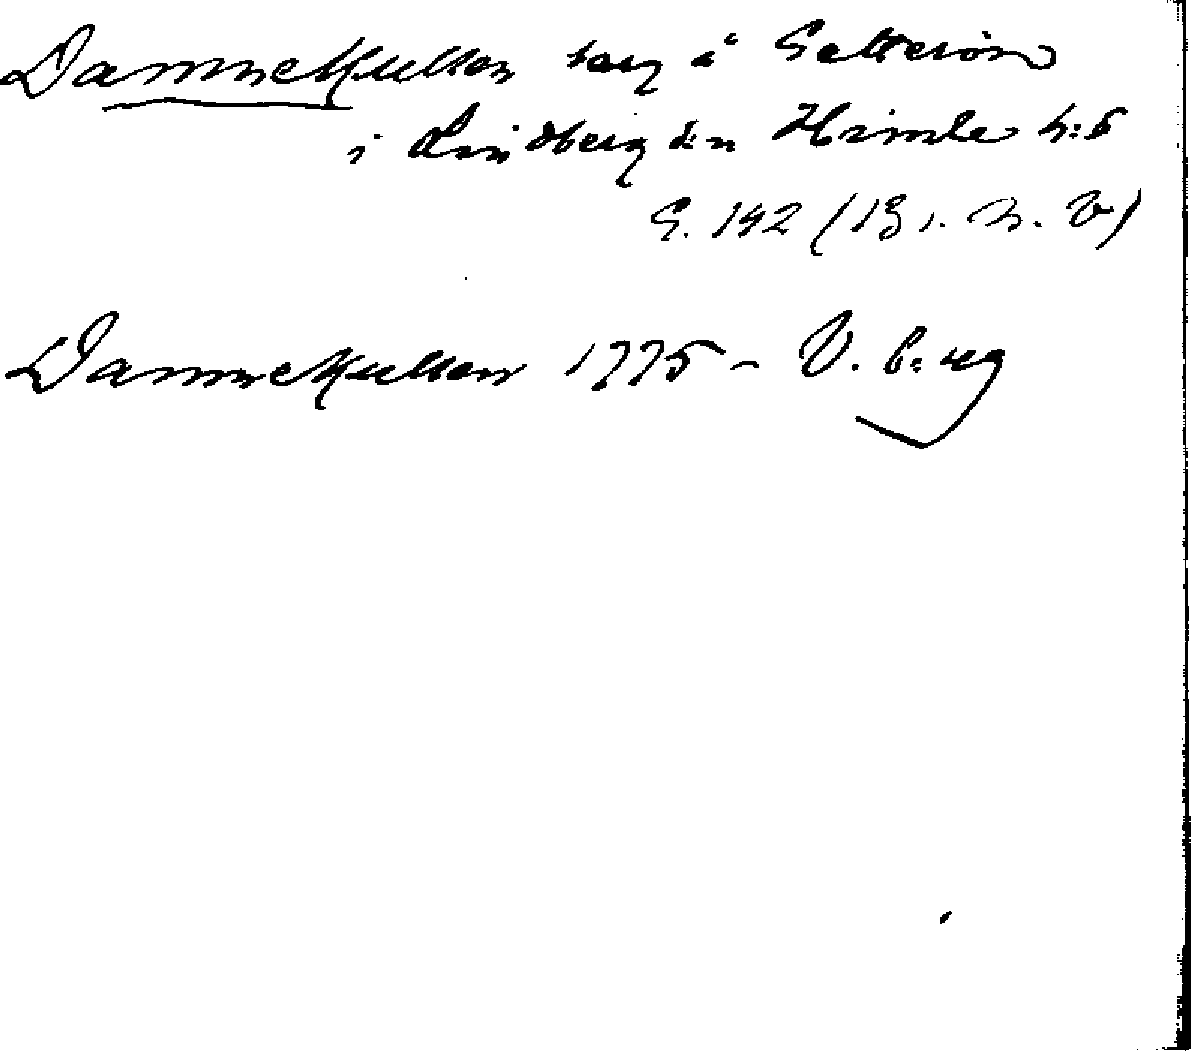 Dannekullen berg å Getterön
i Lindberg s:n Himle h:d
G. 142 (13 i. N. V)
Dannekullen 1775 - V. b:ug